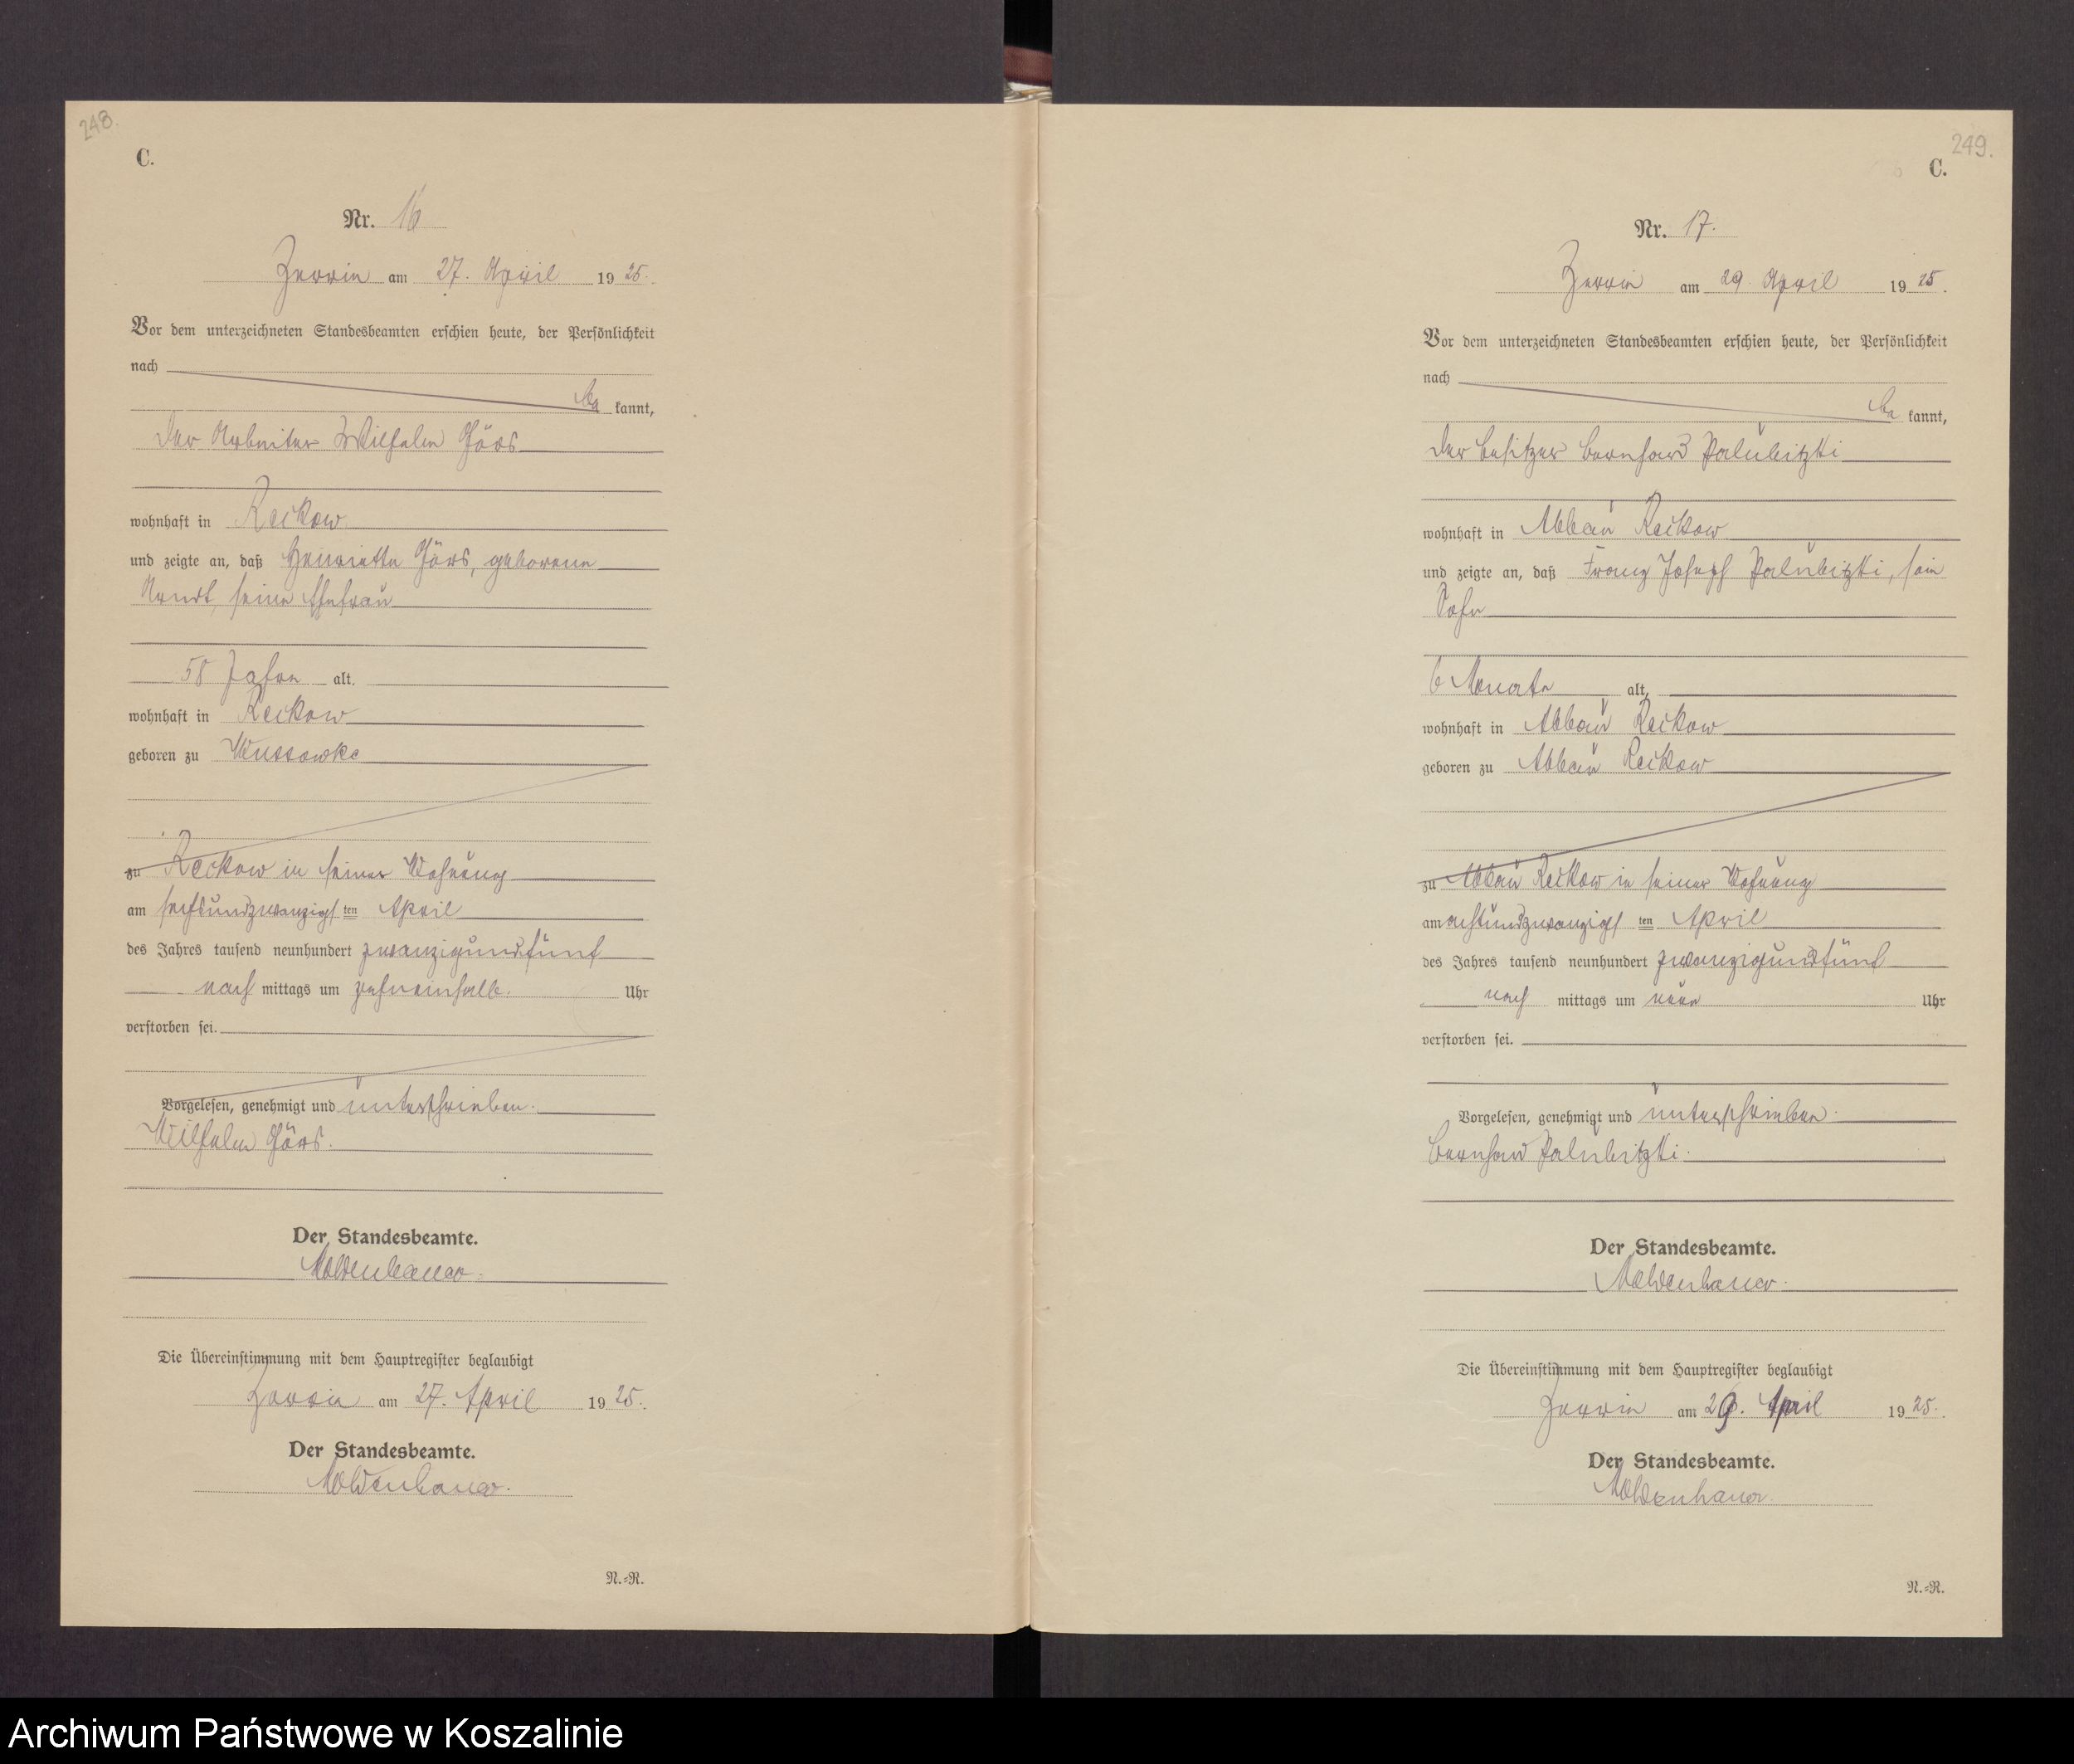 248.
C.
Nr. 16
Zerrin am 27. April 1925.
Vor dem unterzeichneten Standesbeamten erschien heute, der Persönlichkeit
nach
be kannt,
der Arbeiter Wilhelm Görs
wohnhaft in Reckow
und zeigte an, daß Henriette Görs, geborene
Arndt, seine Ehefrau
58 Jahre alt.
wohnhaft in Reckow
geboren zu Wussowke
zu Reckow in seiner Wohnung
am sechsundzwanzigsten April
des Jahres tausend neunhundert zwanzigundfünf
nach mittags um zehneinhalb. Uhr
verstorben sei.
Vorgelesen, genehmigt und unterschrieben.
Wilhelm Görs.
Der Standesbeamte.
Moldenhauer.
Die Übereinstimmung mit dem Hauptregister beglaubigt
Zerrin am 27. April 1925.
Der Standesbeamte.
Moldenhauer.
N.=R.
249.
C.
Nr. 17.
Zerrin am 29. April 1925.
Vor dem unterzeichneten Standesbeamten erschien heute, der Persönlichkeit
nach
be kannt,
der Besitzer Bernhard Palubitzki
wohnhaft in Abbau Reckow
und zeigte an, daß Franz Joseph Palubitzki, sein
Sohn
6 Monate alt,
wohnhaft in Abbau Reckow
geboren zu Abbau Reckow
zu Abbau Reckow in seiner Wohnung
am achtundzwanzigsten April
des Jahres tausend neunhundert zwanzigundfünf
nach mittags um neun Uhr
verstorben sei.
Vorgelesen, genehmigt und unterschrieben.
Bernhard Palubitzki.
Der Standesbeamte.
Moldenhauer.
Die Übereinstimmung mit dem Hauptregister beglaubigt
Zerrin am 29. April 1925.
Der Standesbeamte.
Moldenhauer.
N.=R.
Archiwum Państwowe w Koszalinie